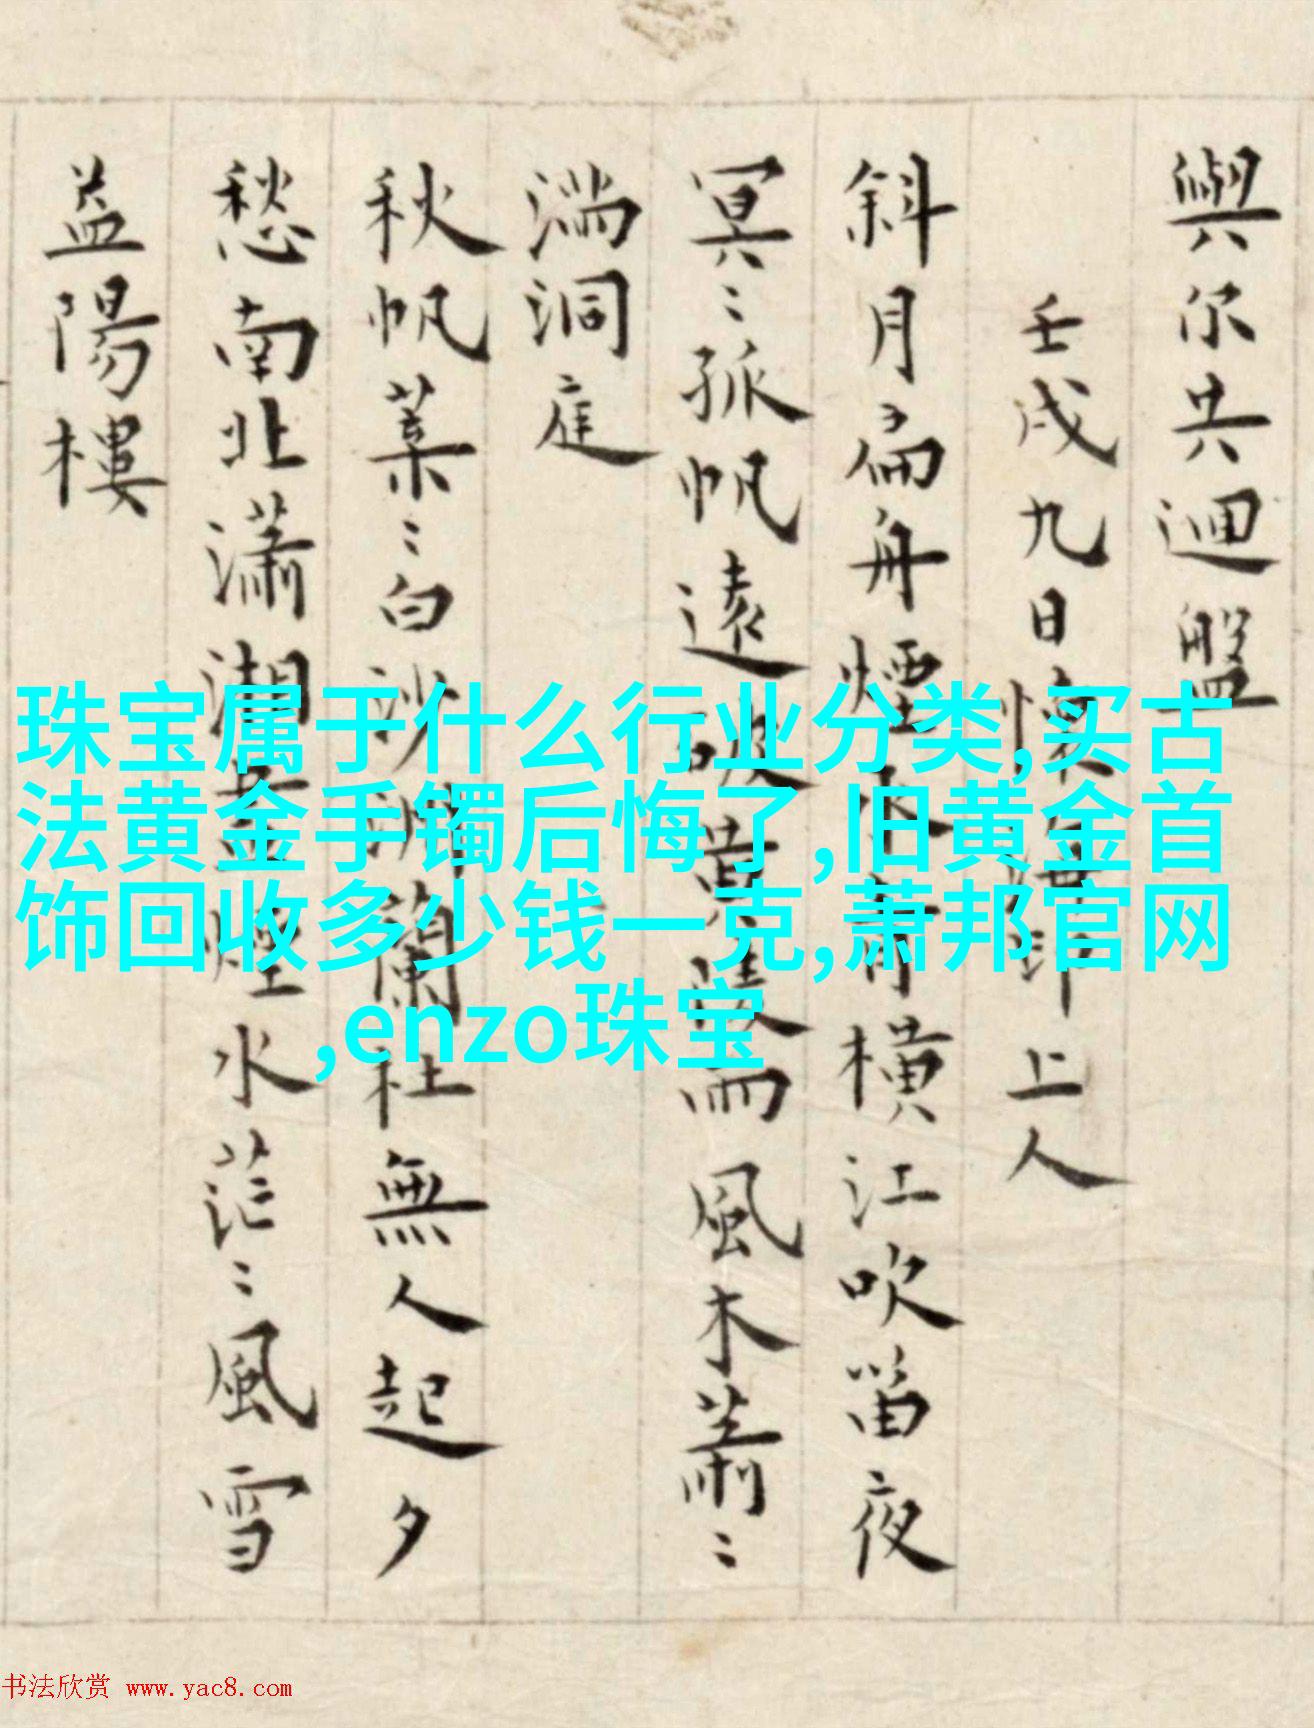 與尔共迴盤
壬戌九日懷海印上人
斜月扁舟煙水宵橫江吹笛夜
冥〻孤帆遠
黃陵雨風木蕭〻
湍洞庭
秋帆葉〻白沙洲蘭杜無人起夕
愁南北瀟湖煙水茫〻風雪
益陽樓
珠宝属于什么行业分类,买古
法黄金手镯后悔了,旧黄金首
饰回收多少钱一克,萧邦官网
,enzo珠宝
书法欣赏 www.yac8.com